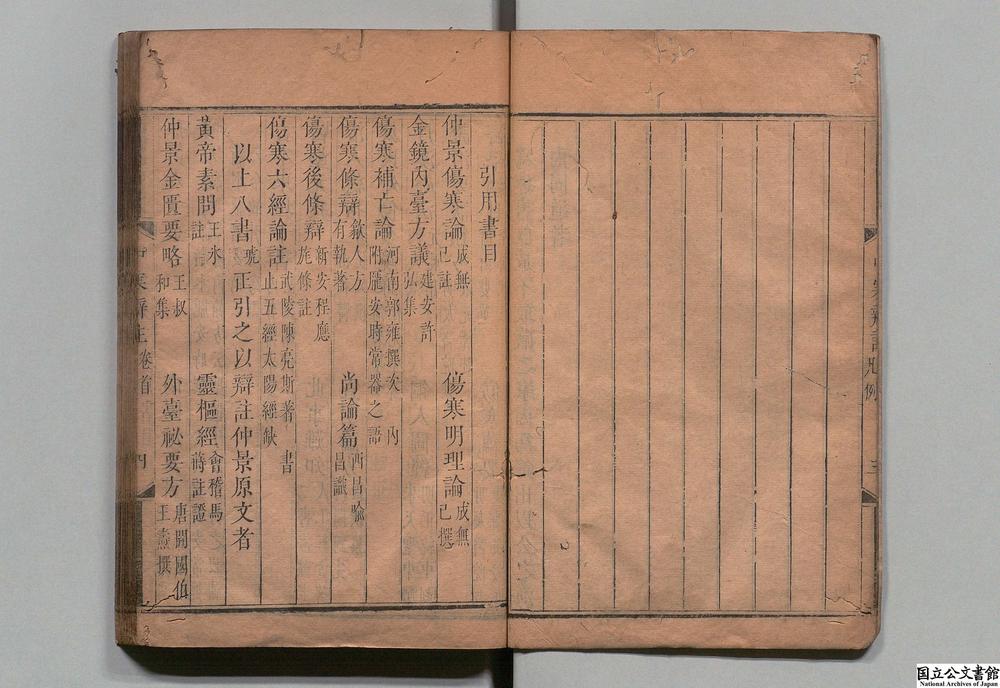 中寒辯註凡例 三
引用書目
仲景傷寒論 成無已註 傷寒明理論 成無已撰
金鏡內臺方議 建安許弘集
傷寒補亡論 河南郭雍撰次 內附龐安時常器之語
傷寒條辯 歙人方有執著 尚論篇 西昌喻昌識
傷寒後條辯 新安程應旄條註
傷寒六經論註 武陵陳亮斯著 書止五經太陽經缺
以上八書琥正引之以辯註仲景原文者
黃帝素問 王氷註 靈樞經 會稽馬蒔註證
仲景金匱要略 王叔和集 外臺祕要方 唐開國伯王燾撰
中寒辯註 卷首 四
国立公文書館
National Archives of Japan